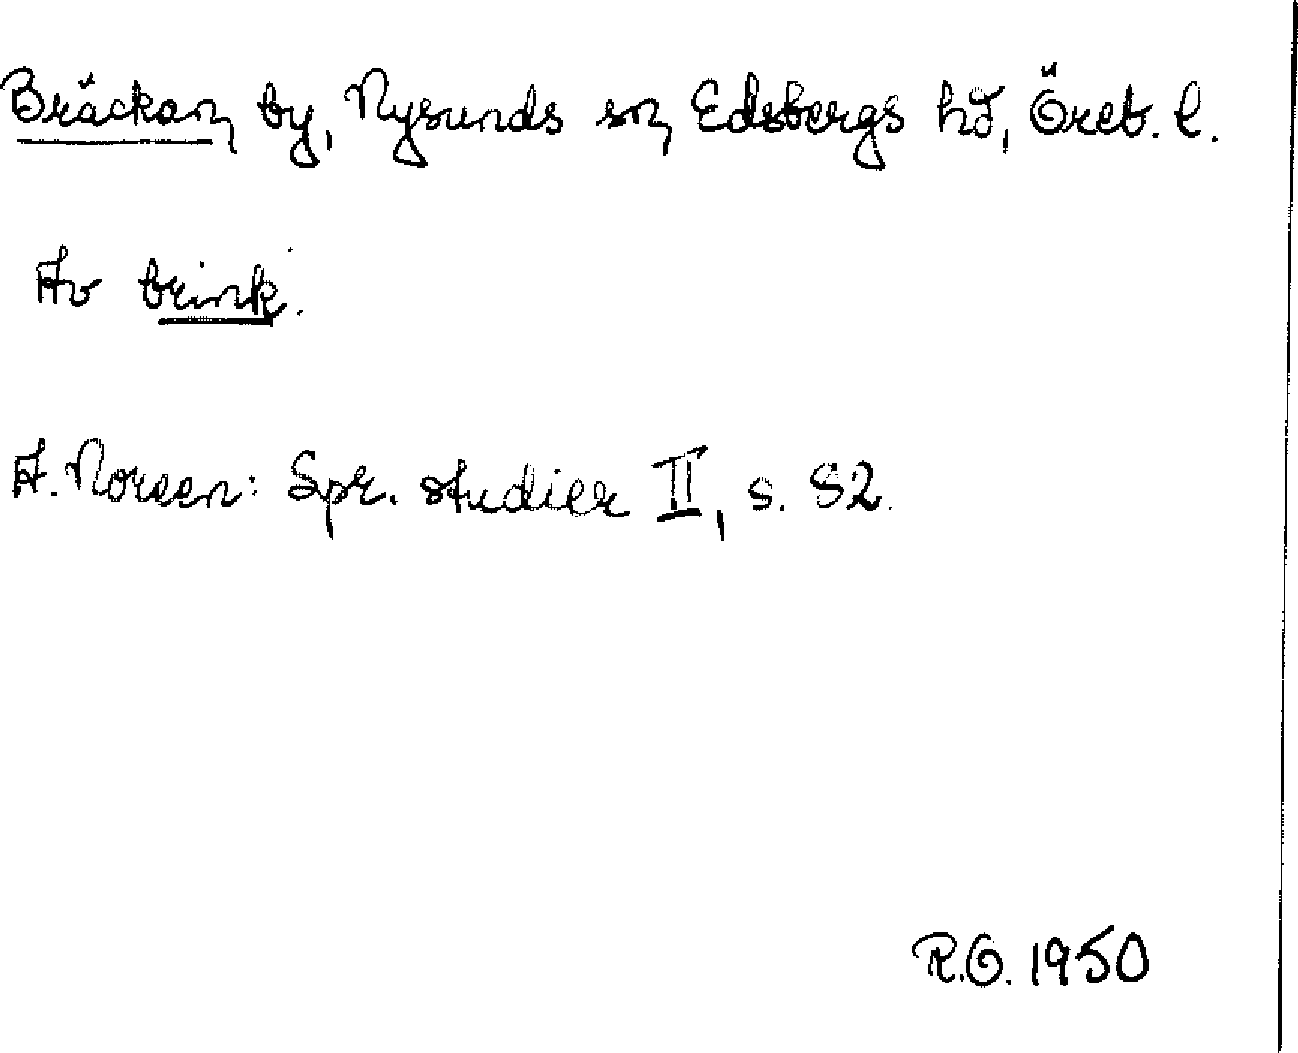 Bräckan, by, Nysunds sn, Edsbergs hd, Öreb. l.
Av brink.
A. Noreen: Spr. studier II, s. 82.
R.O. 1950